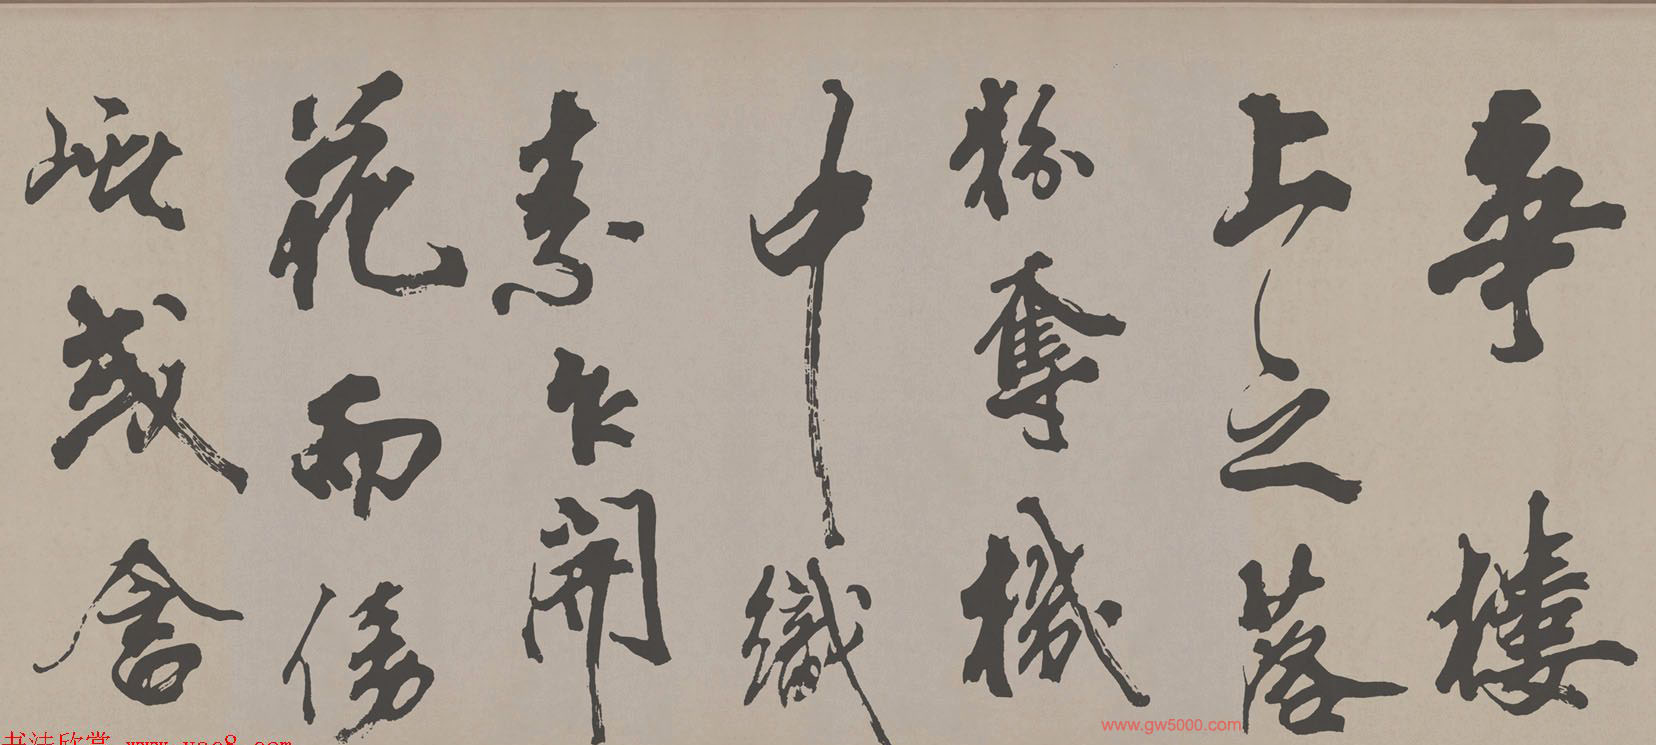 爭樓
上之落
粉奪機
中織
素乍開
花而傍
或含
www.gw5000.com
书法欣赏 www.yac8.com